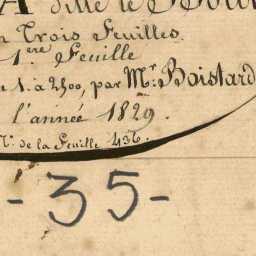 A dite le
n Trois Feuilles.
1.ère Feuille
e 1. à 2500, par Mr. Boistard
l'année 1829.
N.º de la Feuille 436.
- 35 -